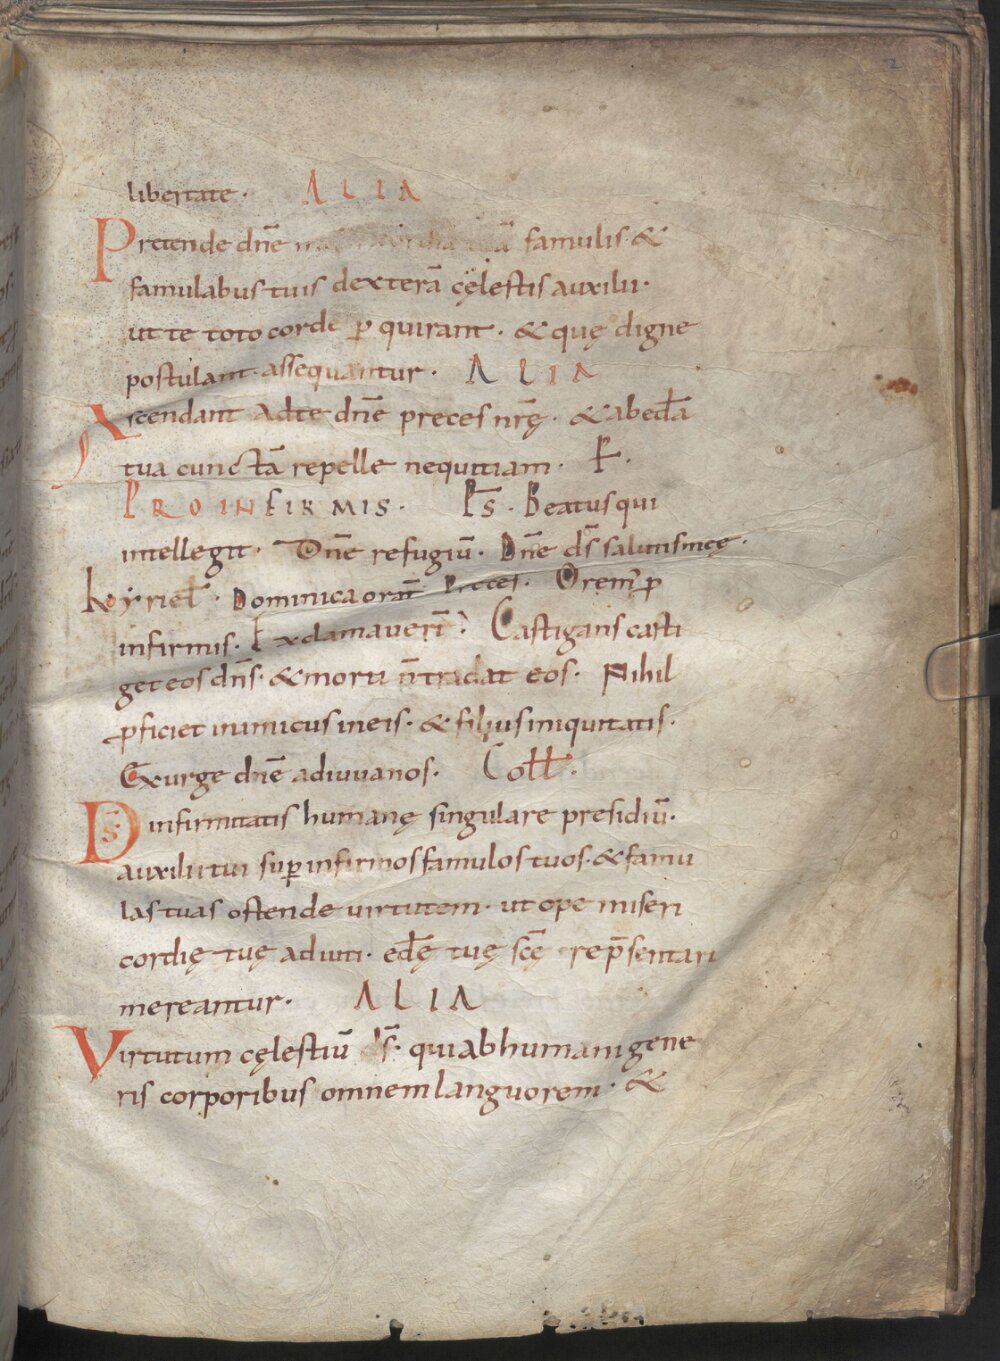 2
libertate · ALIA
Pretende dñe misericordia tuā famulis · &
famulabus tuis dexterā cęlestis auxilii ·
ut te toto corde ꝑ quirant · & quę digne
postulant · assequantur · ALIA
Ascendant ad te dñe preces nr̄ę · & ab ecl̄a
tua cunctā repelle nequitiam · P ·
PRO INFIRMIS · Ps̄ · Beatus qui
intellegit · Dñe refugiū · Dñe ds̄ salutis męę ·
kyriel̄ · Dominica orat̄ Preces · Orem' ꝑ
infirmis · Exclamaverī · Castigans casti
get eos dn̄s · & morti n̄ tradat eos · Nihil
ꝓficiet inimicus in eis · & filius iniquitatis ·
Exurge dñe adiuva nos · Coll̄ ·
Ds̄ infirmitatis humanę singulare presidiū ·
auxilii tui suꝑ infirmos famulos tuos · & famu
las tuas ostende virtutem · ut ope miseri
cordię tuę adiuti · ecl̄ę tuę sc̄ę rep̄sentari
mereantur · ALIA
Virtutum cęlestiū ds̄ · qui ab humani gene
ris corporibus omnem languorem · &